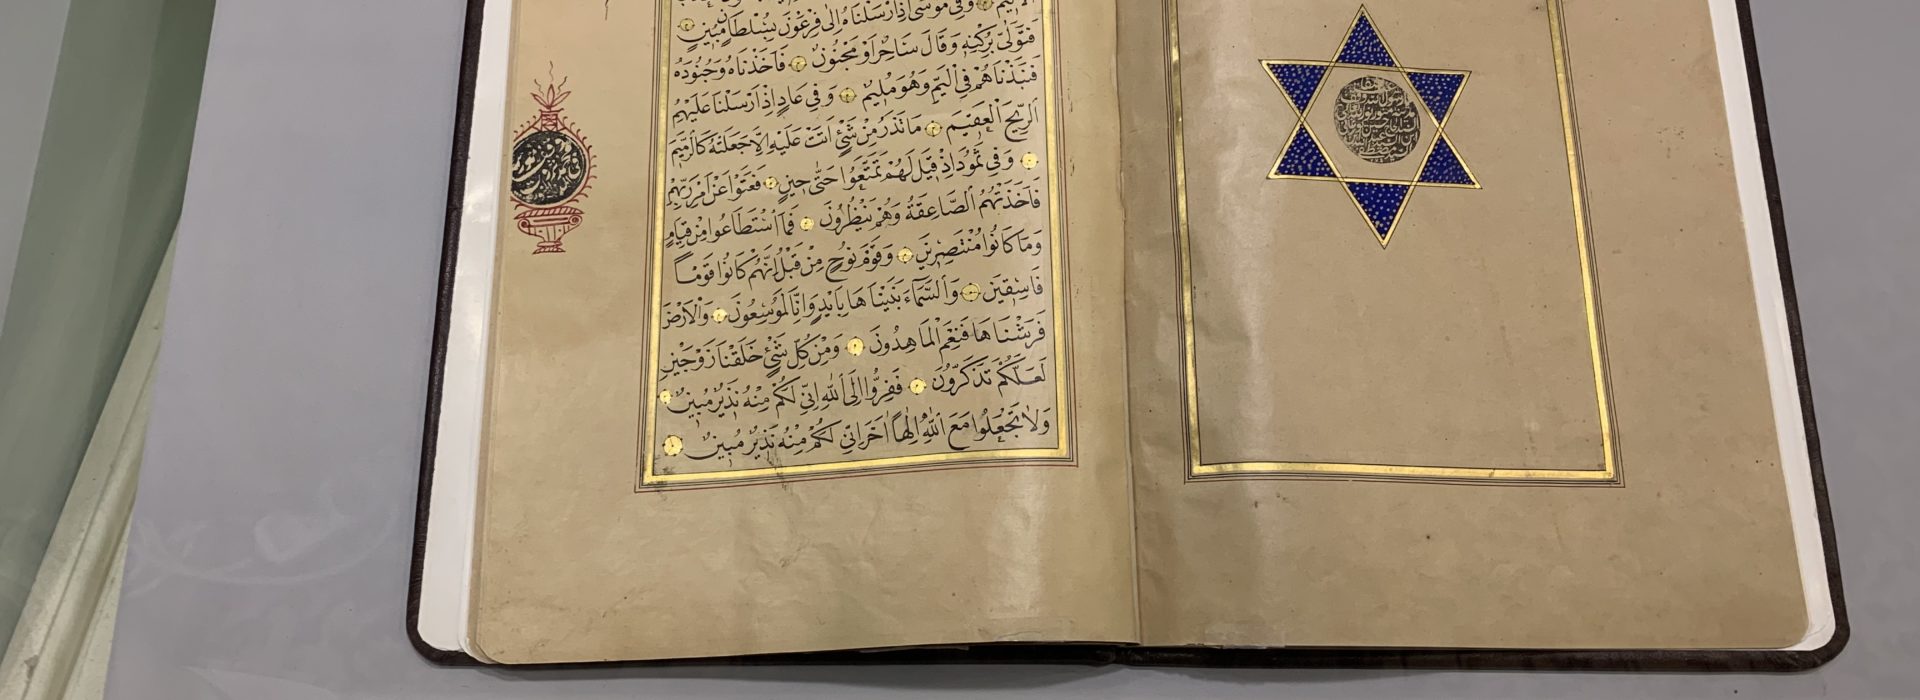 الْاَلِيمَ وَفِي مُوسَى اِذْ اَرْسَلْنَاهُ اِلَى فِرْعَوْنَ بِسُلْطَانٍ مُبِينٍ
فَتَوَلَّى بِرُكْنِهِ وَقَالَ سَاحِرٌ اَوْ مَجْنُونٌ فَاَخَذْنَاهُ وَجُنُودَهُ
فَنَبَذْنَاهُمْ فِي الْيَمِّ وَهُوَ مُلِيمٌ وَفِي عَادٍ اِذْ اَرْسَلْنَا عَلَيْهِمُ
الرِّيحَ الْعَقِيمَ مَا تَذَرُ مِنْ شَيْءٍ اَتَتْ عَلَيْهِ اِلَّا جَعَلَتْهُ كَالرَّمِيمِ
وَفِي ثَمُودَ اِذْ قِيلَ لَهُمْ تَمَتَّعُوا حَتَّى حِينٍ فَعَتَوْا عَنْ اَمْرِ رَبِّهِمْ
فَاَخَذَتْهُمُ الصَّاعِقَةُ وَهُمْ يَنْظُرُونَ فَمَا اسْتَطَاعُوا مِنْ قِيَامٍ
وَمَا كَانُوا مُنْتَصِرِينَ وَقَوْمَ نُوحٍ مِنْ قَبْلُ اِنَّهُمْ كَانُوا قَوْمًا
فَاسِقِينَ وَالسَّمَاءَ بَنَيْنَاهَا بِاَيْدٍ وَاِنَّا لَمُوسِعُونَ وَالْاَرْضَ
فَرَشْنَاهَا فَنِعْمَ الْمَاهِدُونَ وَمِنْ كُلِّ شَيْءٍ خَلَقْنَا زَوْجَيْنِ
لَعَلَّكُمْ تَذَكَّرُونَ فَفِرُّوا اِلَى اللهِ اِنِّي لَكُمْ مِنْهُ نَذِيرٌ مُبِينٌ
وَلَا تَجْعَلُوا مَعَ اللهِ اِلٰهًا اٰخَرَ اِنِّي لَكُمْ مِنْهُ نَذِيرٌ مُبِينٌ